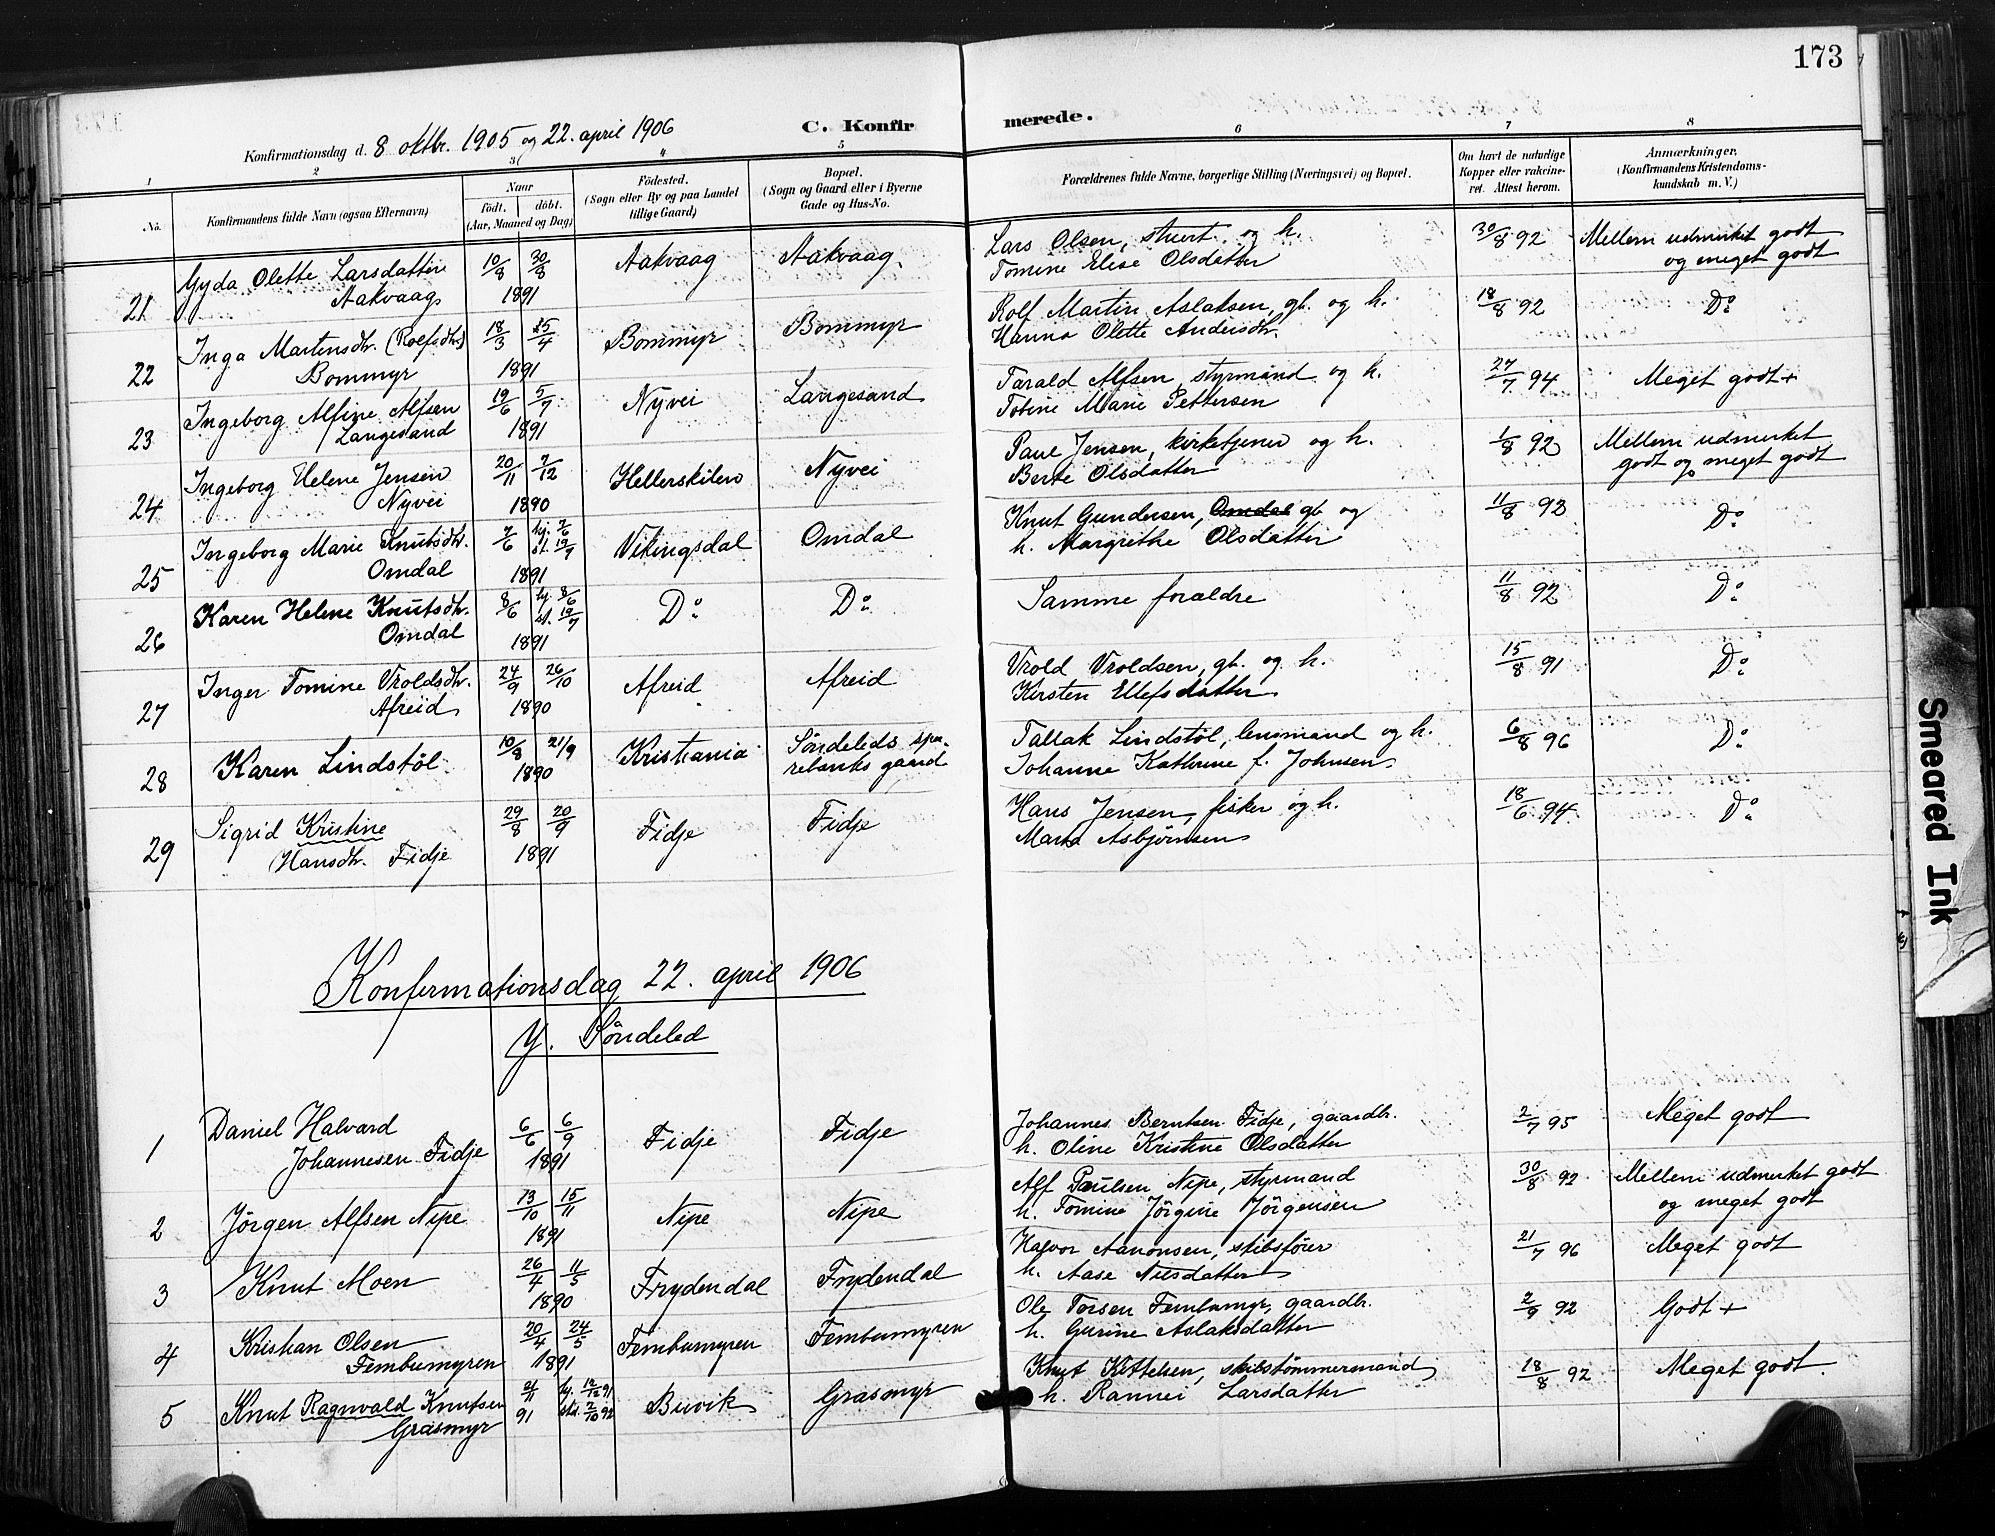 173
Konfirmationsdag d. 8 oktbr. 1905 og 22. april 1906
C. Konfirmerede.
1 2 3 4 5 6 7 8
No.
Konfirmandens fulde Navn (ogsaa Efternavn)
Naar
födt. döbt.
(Aar, Maaned og Dag)
Födested.
(Sogn eller By og paa Landet
tillige Gaard)
Bopæl.
(Sogn og Gaard eller i Byerne
Gade og Hus-No.
Forældrenes fulde Navne, borgerlige Stilling (Næringsvei) og Bopæl.
Om havt de naturlige
Kopper eller vakcine-
ret. Attest herom.
Anmærkninger.
(Konfirmandens Kristendoms-
kundskab m. V.)
21 Gyda Olette Larsdatter 10/8 30/8 Aakvaag Aakvaag Lars Olsen, stuert og h. 30/8 92 Mellem udmerket godt
Aakvaag 1891 Tomine Elise Olsdatter og meget godt
22 Inga Martensdtr. (Rolfsdtr) 18/3 25/4 Bommyr Bommyr Rolf Martin Aslaksen, gb. og h. 18/8 92 Do
Bommyr 1891 Hanna Olette Andersdtr.
23 Ingeborg Alfine Alfsen 19/6 5/7 Nyvei Langesand Tarald Alfsen, styrmand og h. 27/7 94 Meget godt +
Langesand 1891 Tobine Marie Pettersen
24 Ingeborg Helene Jensen 20/11 7/12 Hellerskilen Nyvei Paul Jensen, kirketjener og h. 1/8 92 Mellem udmerket
Nyvei 1890 Berte Olsdatter godt og meget godt
25 Ingeborg Marie Knutsdtr. 7/6 hj. 7/6 Vikingsdal Omdal Knut Gundersen, Omdal gb og 11/8 92 Do
Omdal st. 19/7 1891 h. Margrethe Olsdatter
26 Karen Helene Knutsdtr. 8/6 hj. 8/6 Do Do Samme forældre 11/8 92 Do
Omdal st. 19/7 1891
27 Inger Tomine Vroldsdtr. 24/9 26/10 Afreid Afreid Vrold Vroldsen, gb. og h. 15/8 91 Do
Afreid 1890 Kirsten Ellefsdatter
28 Karen Lindstöl 10/8 21/9 Kristiania Söndeleds spa- Tallak Lindstöl, lensmand og h. 6/8 96 Do
1890 rebanks gaard Johanne Kathrine f. Johnsen
29 Sigrid Kristine 29/8 20/9 Fidje Fidje Hans Jensen, fisker og h. 18/6 94 Do
Hansdtr. Fidje 1891 Marta Asbjørnsen
Konfirmationsdag 22. april 1906
Y. Söndeled
1 Daniel Halvard 6/6 6/9 Fidje Fidje Johannes Berntsen Fidje, gaardbr. 2/7 95 Meget godt
Johannesen Fidje 1891 h. Oline Kristine Olsdatter
2 Jörgen Alfsen Nipe 13/10 15/11 Nipe Nipe Alf Paulsen Nipe, styrmand 30/8 92 Mellem udmerket godt
1891 h. Tomine Jörgine Jörgensen og meget godt
3 Knut Moen 26/4 11/5 Frydendal Frydendal Halvor Aanonsen, skibsfører 21/7 96 Meget godt
1890 h. Aase Nilsdatter
4 Kristian Olsen 20/4 24/5 Fembumyren Fembumyren Ole Torsen Fembumyr, gaardbr. 2/9 92 Godt +
Fembumyren 1891 h. Gurine Aslaksdatter
5 Knut Ragnvald Knutsen 21/11 hj. 12/12 91 Buvik Grasmyr Knut Kittelsen, skibstömmermand 18/8 92 Meget godt.
Grasmyr 91 st. 2/10 92 h. Rannei Larsdatter
Smeared Ink